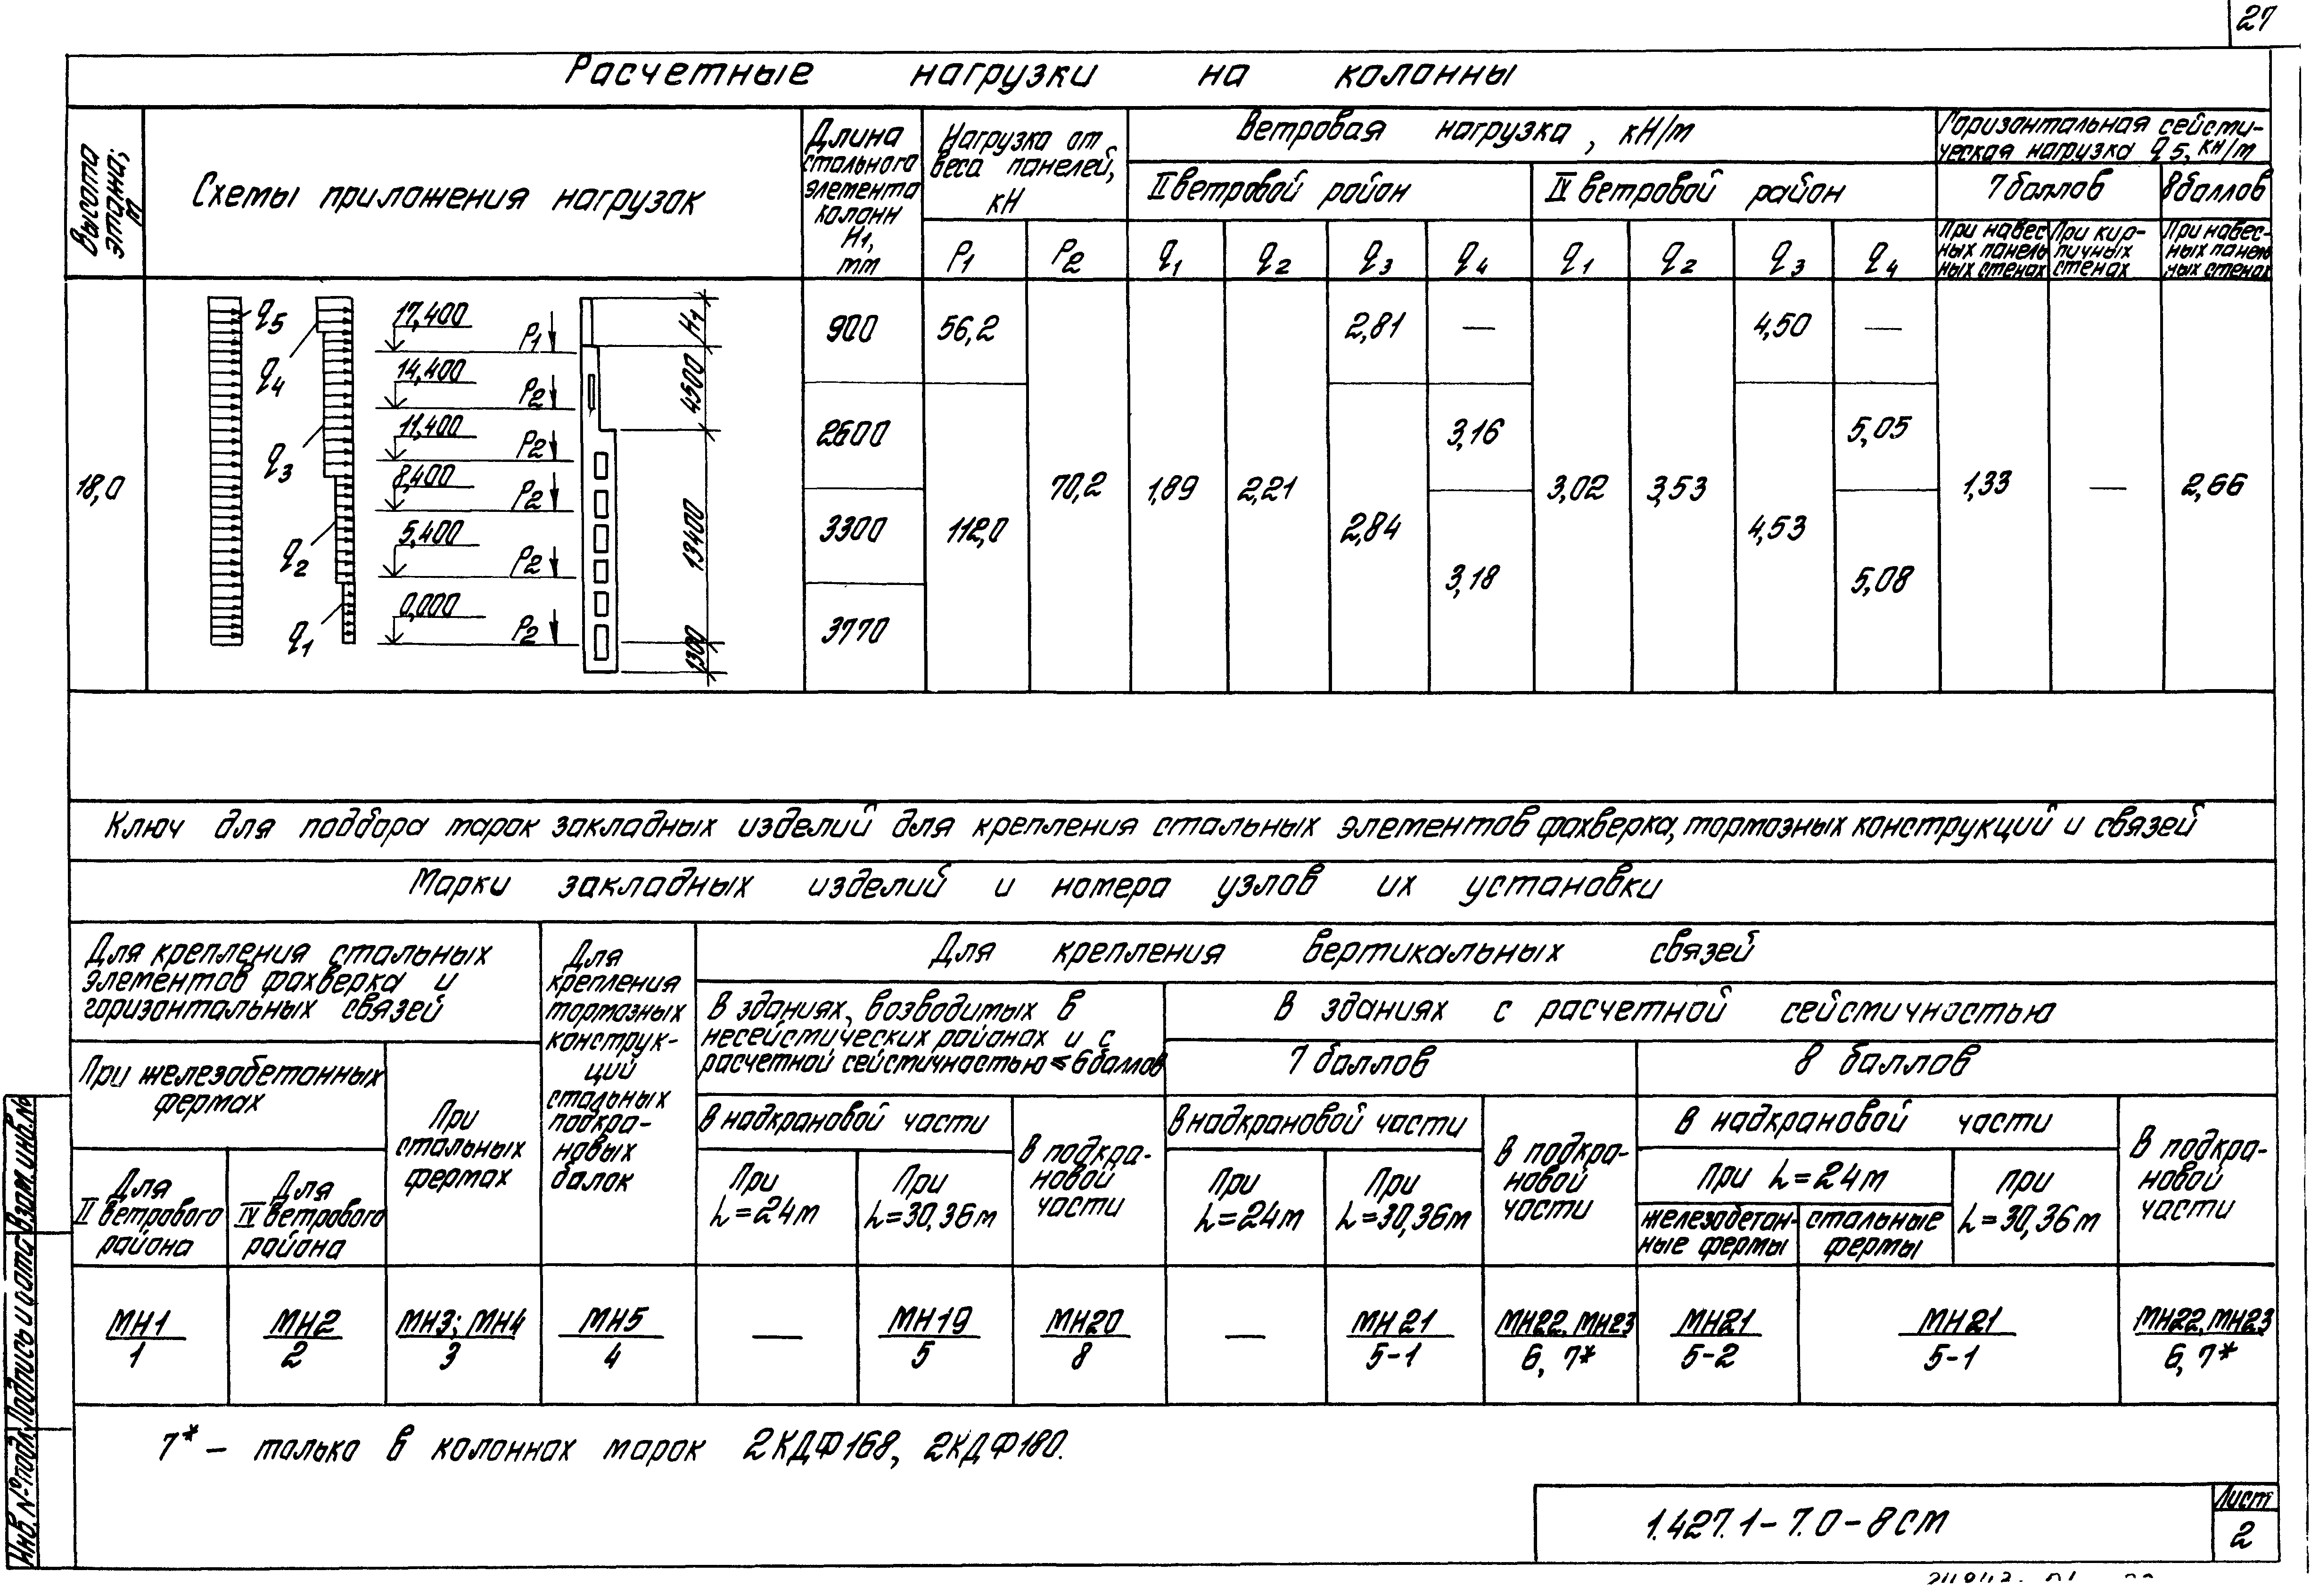 27
Расчетные нагрузки на колонны
Высота этажа, м
Схемы приложения нагрузок
Длина
стального
элемента
колонн
H1,
мм
Нагрузка от
веса панелей,
кН
Ветровая нагрузка, кН/м
Горизонтальная сейсми-
ческая нагрузка q5, кН/м
II ветровой район
IV ветровой район
7 баллов
8 баллов
P1
P2
q1
q2
q3
q4
q1
q2
q3
q4
При навес-
ных панель-
ных стенах
При кир-
пичных
стенах
При навес-
ных панель-
ных стенах
18,0
q5
q4
q3
q2
q1
17,400
P1
14,400
P2
11,400
P2
8,400
P2
5,400
P2
0,000
P2
H1
4500
13400
1300
900
2600
3300
3770
56,2
112,0
70,2
1,89
2,21
2,81
2,84
—
3,16
3,18
3,02
3,53
4,50
4,53
—
5,05
5,08
1,33
—
2,66
Ключ для подбора марок закладных изделий для крепления стальных элементов фахверка, тормозных конструкций и связей
Марки закладных изделий и номера узлов их установки
Для крепления стальных
элементов фахверка и
горизонтальных связей
При железобетонных
фермах
Для
II ветрового
района
Для
IV ветрового
района
При
стальных
фермах
Для
крепления
тормозных
конструк-
ций
стальных
подкра-
новых
балок
Для крепления вертикальных связей
В зданиях, возводимых в
несейсмических районах и с
расчетной сейсмичностью ≤ 6 баллов
В надкрановой части
При
L=24м
При
L=30,36м
В подкра-
новой
части
В зданиях с расчетной сейсмичностью
7 баллов
В надкрановой части
При
L=24м
При
L=30,36м
В подкра-
новой
части
8 баллов
В надкрановой части
При L=24м
железобетон-
ные фермы
стальные
фермы
При
L=30,36м
В подкра-
новой
части
МН1
1
МН2
2
МН3; МН4
3
МН5
4
—
МН19
5
МН20
8
—
МН21
5-1
МН22, МН23
6, 7*
МН21
5-2
МН21
5-1
МН22, МН23
6, 7*
7* – только в колоннах марок 2КДФ168, 2КДФ180.
Инв. № подл.
Подпись и дата
Взам. инв. №
1.427.1-7.0-8СМ
Лист
2